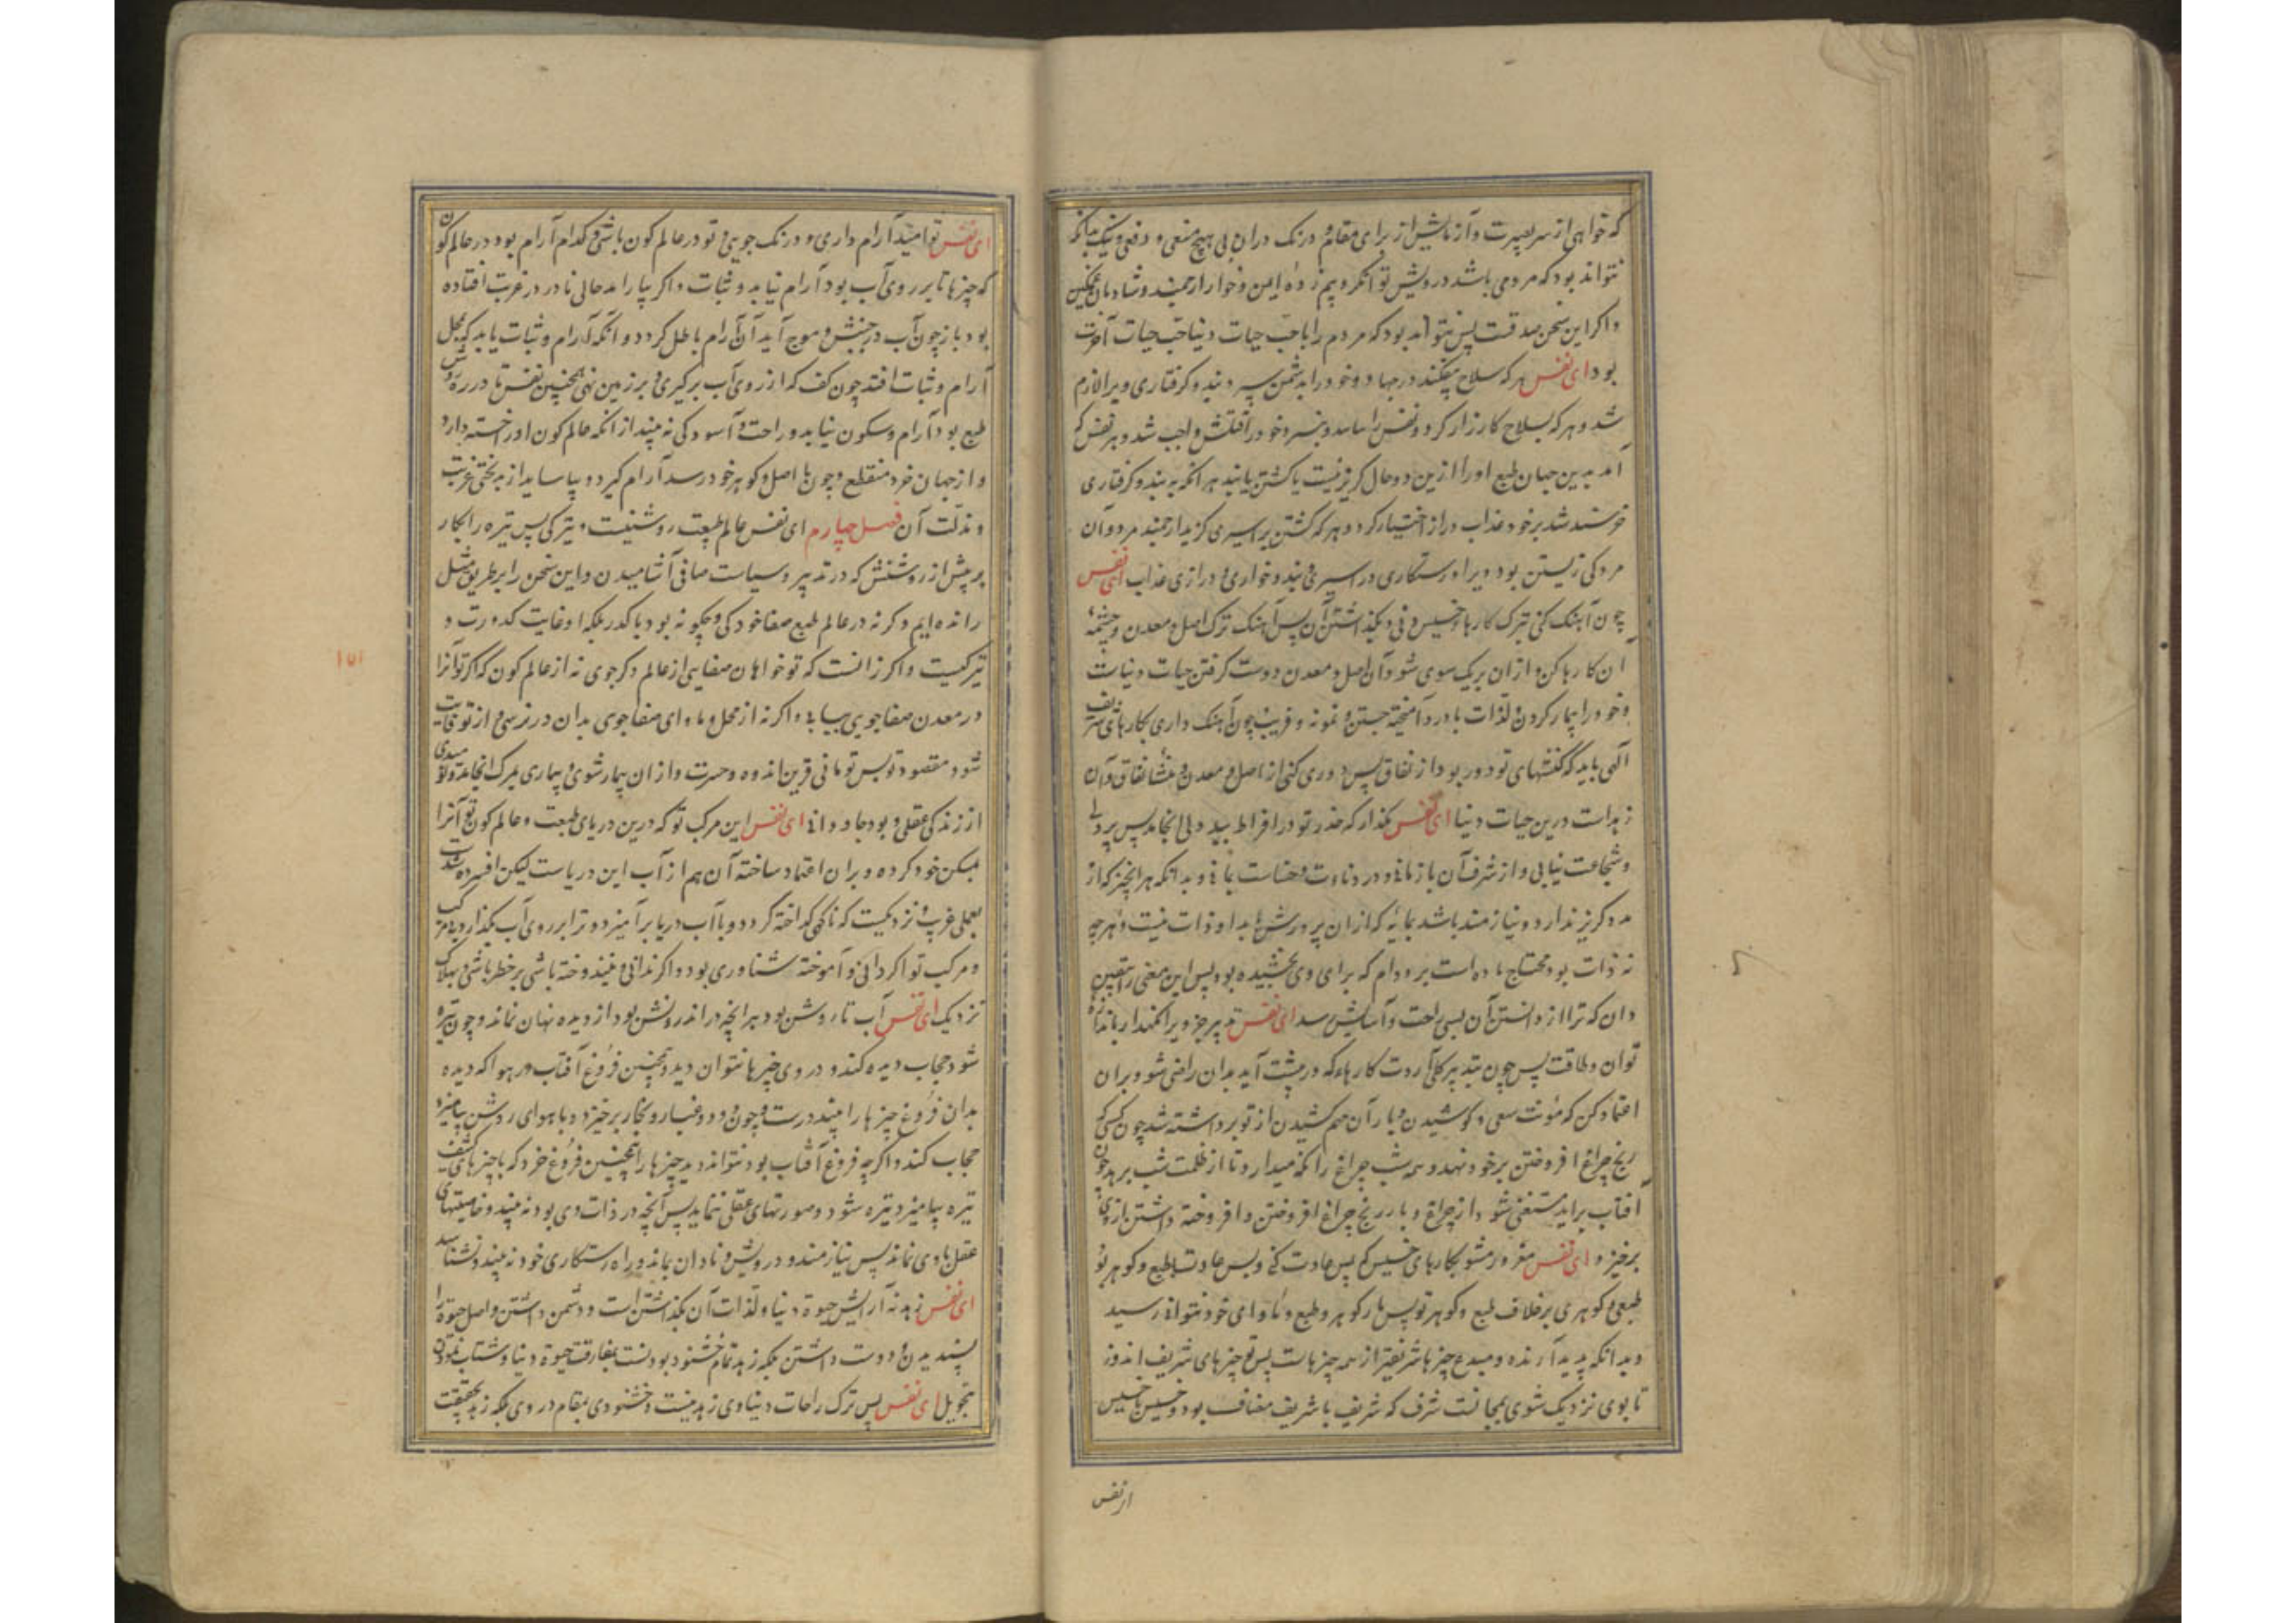 که خواهی از سر بصیرت و آزمایش از برای مقام و درنک در ان بی هیچ منفعی و دفعی و نیک بدانکه
نتواند بود که مردمی باشد درویش توانکر و بیم زده ایمن و خوار ارجمند و شادمان غمکین
و اکر این سخن صدقست پس نتواند بود که مردم را با حبّ حیات دنیا حبّ حیات آخرت
بود ای نفس هر که سلاح بیفکند در جهاد و خود را بدشمن سپرد بند و کرفتاری ویرا لازم
شد و هر که بسلاح کارزار کرد و نفس را و خود را قتلش واجب شد و هر نفس که
آمد بدین جهان طبع او را از این دو حال کریز نیست یا کشتن یا بند هر انکه به بند و کرفتاری
خرسند شد بر خود عذاب دراز اختیار کرد و هر که کشتن بر اسیری کزید ارجمند مرد و آن
مردکی زیستن بود ویرا و رستکاری در اسیری و بند و خواری و درازی عذاب ای نفس
چون آهنک کنی بترک کارهاء خسیس دنی و بکذاشتن آن پس آهنک ترک اصل و معدن و چشمهٔ
آن کارها کن و از ان بر یک سوی شو و آن اصل و معدن دوست کرفتن حیات دنیاست
و خود را بیمار کردن و لذات با درد آمیخته جستن و نمونه و فریب چون آهنک داری بکارهای شریف
آلهی باید که کفتهای تو دور بود از نفاق پس دوری کنی از اصل و معدن و منشأ نفاق و آن
زهدات در این حیات دنیا ای نفس بکذار که حذر تو در افراط ببد دلی انجامد پس پر دلی
و شجاعت نیابی و از شرف آن باز مانی و در دناءت و خساست بمانی و بدانکه هر انچیز که از
مدد کریز ندارد و نیازمند باشد بمایهٔ که از ان پرورش یابد او ذات نیست و هر چه
نه ذات بود محتاج ماده است بر دوام که برای وی بخشیده بود پس این معنی را بیقین
دان که ترا از دانستن آن بسی راحت و آسایش رسد ای نفس تدبیر جزویرا نکهدار باندازهٔ
توان و طاقت پس چون بتدبیر کلی آردت کارهاء که درپیشت آید بدان راضی شو و بران
اعتماد کن که مؤنت سعی و کوشیدن و بار آن هم کشیدن از تو برداشته شد چون کسی کی
رنج چراغ افروختن بر خود نهد و همه شب چراغ را نکه میدارد تا از ظلمت شب برهد چون
آفتاب براید مستغنی شود از چراغ و بار رنج چراغ افروختن و افروخته داشتن از وی
برخیزد ای نفس مغرور مشو بکارهای خسیس که پس عادت کنی و بس عادتست با طبع و کوهر تو
طبعی و کوهری بر خلاف طبع و کوهر تو پس بازکوهر و طبع و ماوای خود نتوانی رسید
و بدانکه پدید آرنده و مبدع چیزها شریفتر از همه چیزهاست پس تو چیزهای شریف اندوز
تا بوی نزدیک شوی بمجانست شرف که شریف با شریف مضاف بود و خسیس با خسیس
ای نفس
ای نفس تو امید آرام داری و درنک جویی و تو در عالم کون باشی و کدام آرام بود در عالم کون
که چیزها تا بر روی آب بود آرام نیابد و ثبات و اکر بیارامد حالی نادر در غربت افتاده
بود باز چون آب در جنبش و موج آید آن آرام باطل کردد و آنکه آرام و ثبات یابد که بمحل
آرام و ثبات افتد چون کف که از روی آب برکیری و بر زمین نهی همچنین نفس تا در ره
طبع بود آرام و سکون نیابد و راحت و آسودکی نه بیند از انکه عالم کون او را خسته دارد
و از جهان خرد منقطع و چون با اصل و کوهر خود رسد آرام کیرد و بیاساید از بدبختی غربت
و مذلت آن فصل چهارم ای نفس عالم طبیعت روشنیست و تیرکی پس تیره را بکار
بر پیش از روشنش که در تدبیر و سیاست صافی آشامیدن و این سخن را بر طریق مثل
رانده ایم و کرنه در عالم طبع صفا خود کی و چکونه بود با کدر بلکه او غایت کدورت و
تیرکیست و اکر زانست که تو خواهان صفایی از عالم دکر جوی نه از عالم کون که اکر تو آنرا
در معدن صفا جویی بیابی و اکر نه از محل و ماوای صفا جوی بدان در نرسی و از تو فایت
شود مقصود تو پس تو مانی قرین اندوه و حسرت و از ان بیمار شوی و بیماری بمرک انجامد
از زندکی عقلی و بود جاودانه ای نفس این مرکب تو که درین دریای طبیعت و عالم کون تو آنرا
مسکن خود کرده و بران اعتماد ساخته آن هم از آب این دریاست لیکن افسرده شدست
بعملی غریب و نزدیکست که ناکهی کداخته کردد و با آب دریا برآمیزد و ترا بر روی آب بکذارد بی مرکب
و مرکب تو اکر دانی و آموخته شناوری بود و اکر ندانی و نیندوخته باشی بر خطر باشی و بهلاک
نزدیک ای نفس آب تا روشن بود هر انچه در اندرونش بود از دیده نهان نماند و چون تیره
شود حجاب دیده کند و در وی چیزها نتوان دید و همچنین فروغ آفتاب در هوا که دیده
بدان فروغ چیزها را بیند درست و چون دود و غبار و بخار برخیزد و با هوای روشن بیامیزد
حجاب کند و اکر چه فروغ آفتاب بود نتواند دید چیزها را همچنین فروغ خرد که با چیزهای کثیف
تیره بیامیزد تیره شود و صورتهای عقلی ننماید پس آنچه در ذات وی بود نه بیند و خاصیتهای
عقل با وی نماند پس نیازمند و درویش و نادان بماند و راه رستکاری خود نه بیند و نشناسد
ای نفس زهد نه آرایش حیوة دنیا و لذات آن بکذاشتن است و دشمن داشتن و اصل حیوة را
پسندیدن و دوست داشتن بلکه زهد تمام خشنود بودنست بمفارقت حیوة دنیا و شتاب نمودن
بتحویل ای نفس پس ترک راحات دنیاوی زهد نیست و خشنودی بمقام در وی بلکه زهد بحقیقت
۱۵۱